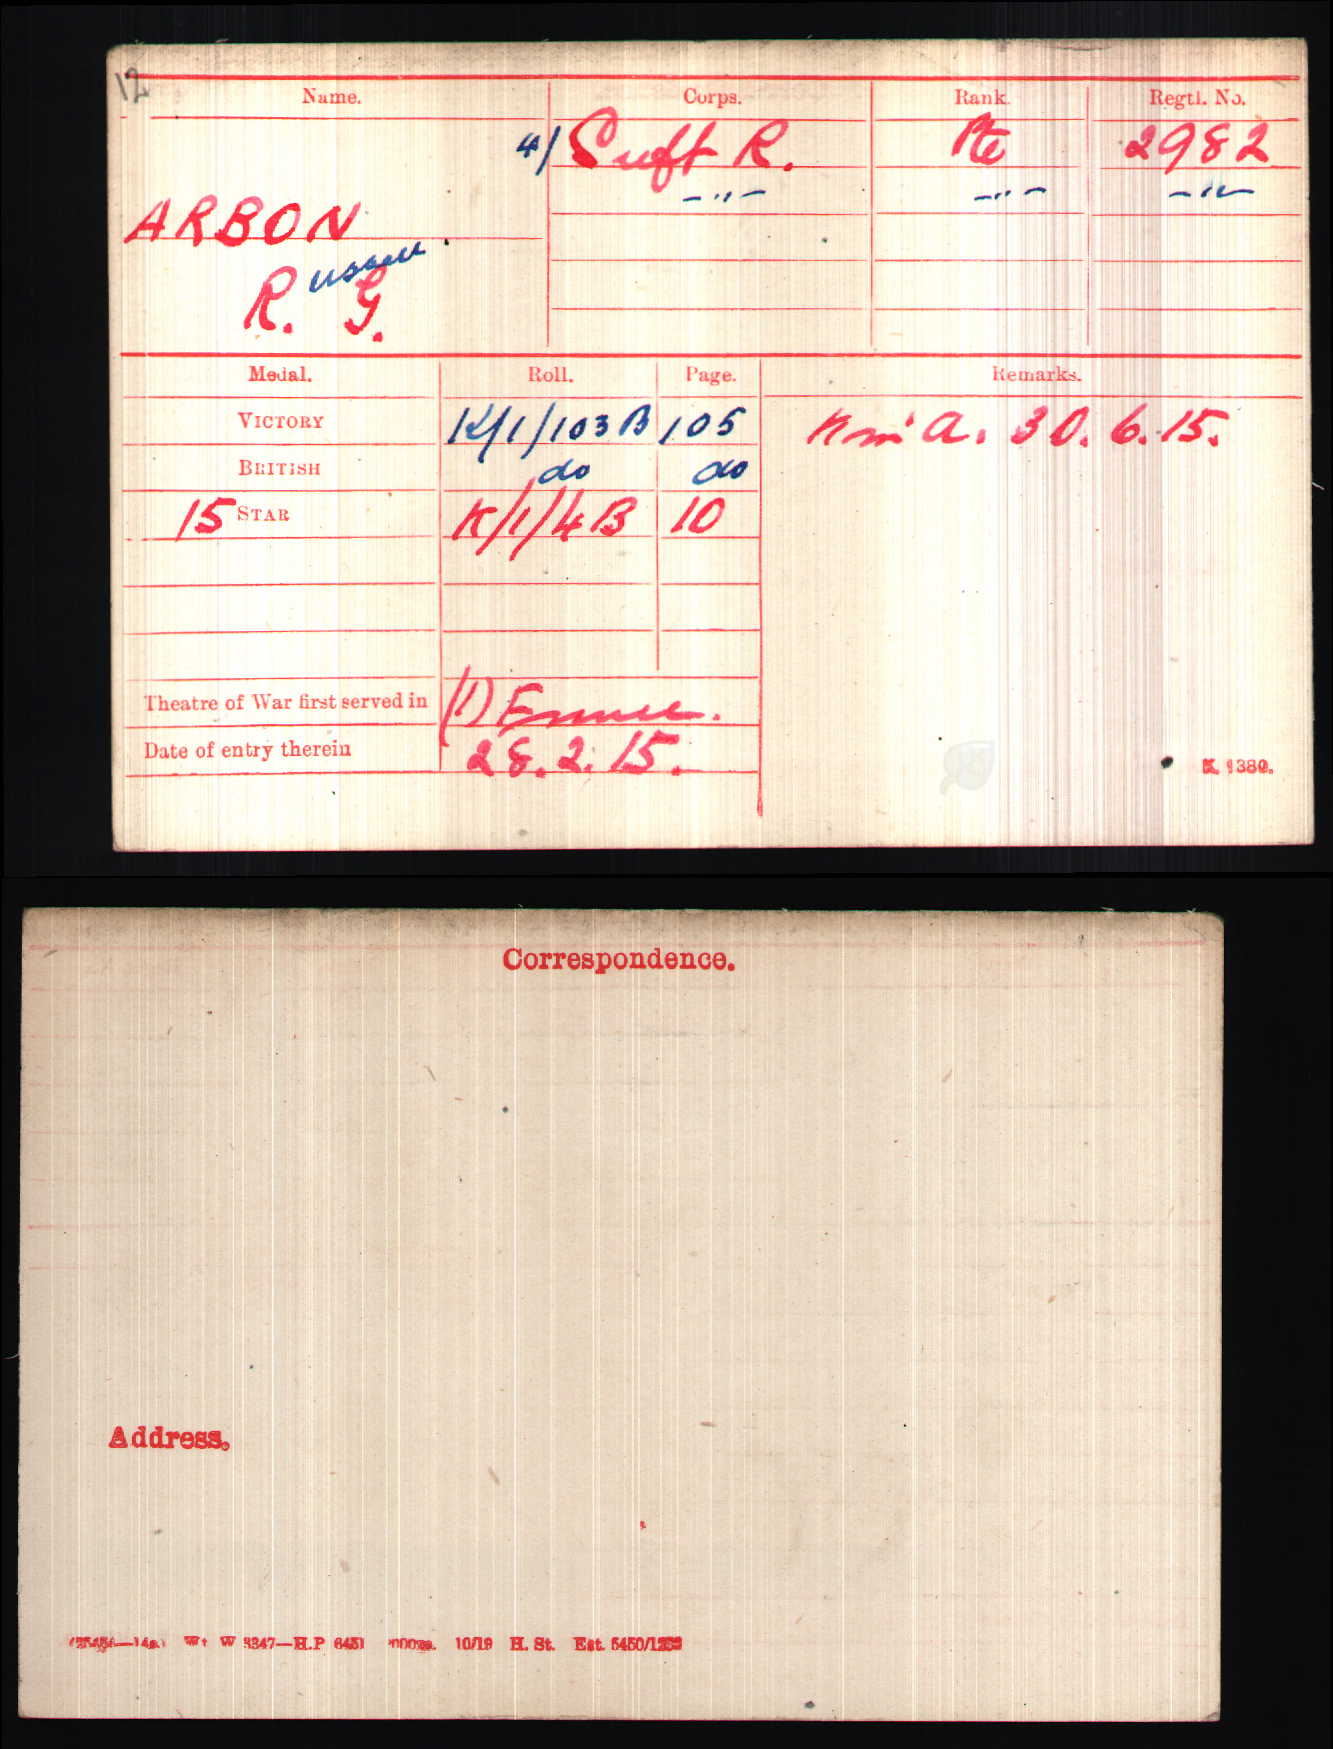 12
Name. Corps. Rank. Regtl. No.
4/ Suff R. Pte 2982
–"– –"– –"–
ARBON
Russell
R. G.
Medal. Roll. Page. Remarks.
VICTORY K/1/103B 105 K in A. 30.6.15.
BRITISH do do
15 STAR K/1/4B 10
Theatre of War first served in (1) France.
Date of entry therein 28.2.15.
K. 1380.
Correspondence.
Address.
Wt W 3347—H.P 6451 10/19 H. St. Est. 5450/